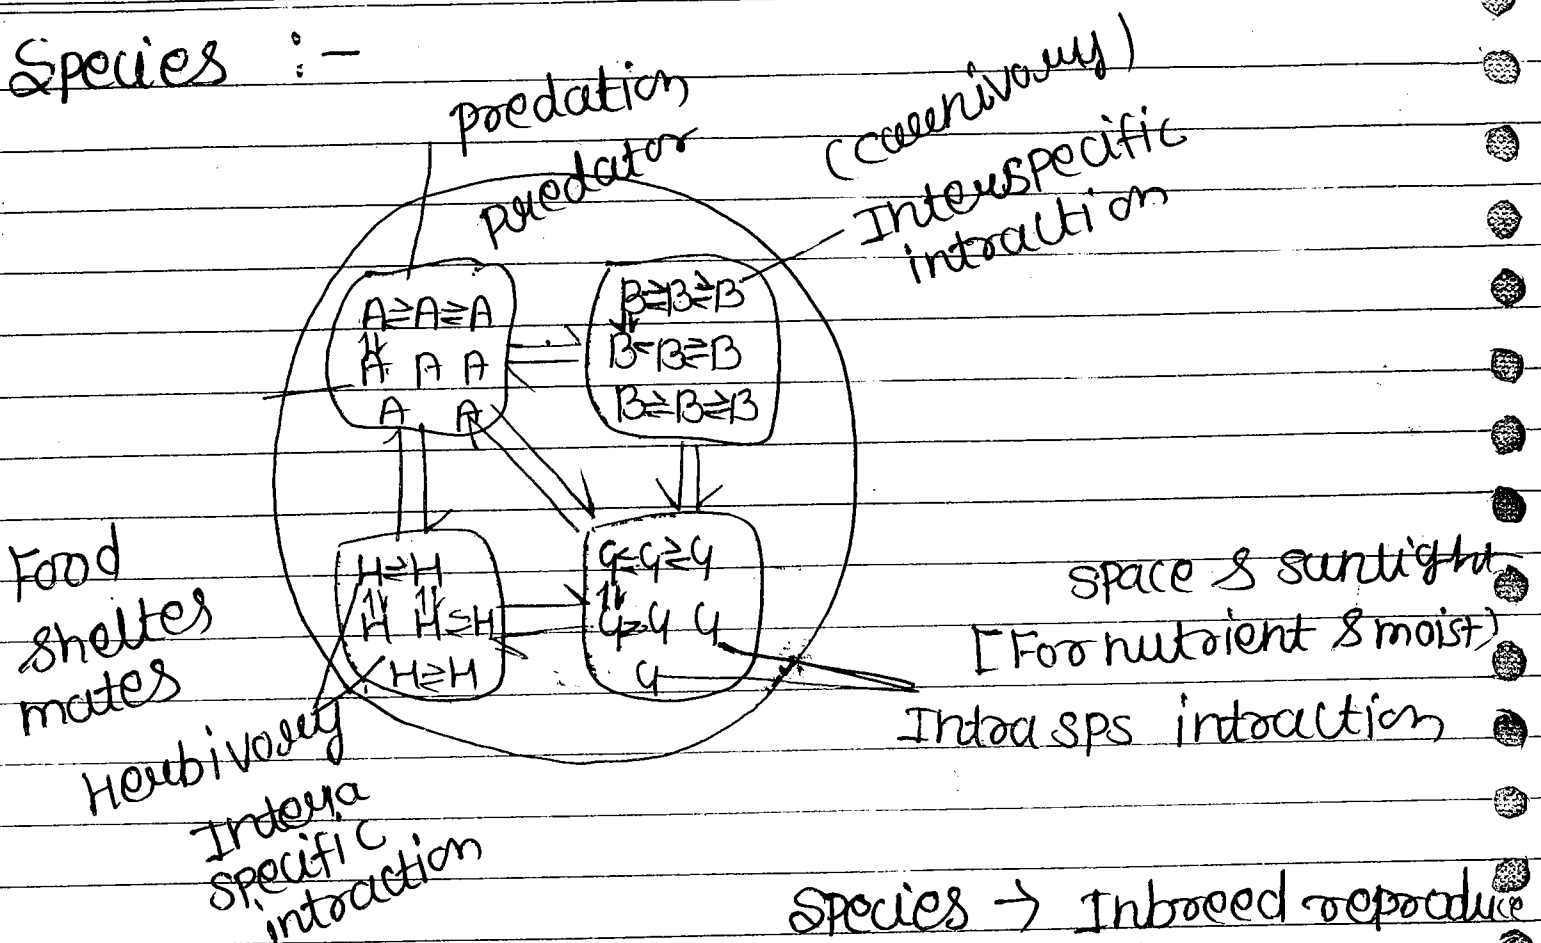 Species :-
predation
predator
(carnivory)
Interspecific
intraction
A⇄A⇄A
A A A
A A
B⇄B⇄B
B⇄B⇄B
B⇄B⇄B
H⇄H
H H⇄H
H⇄H
G⇄G⇄G
G⇄G G
G
Food
sheltes
mates
Herbivory
Intera
specific
intraction
space & sunlight
[For nutrient & moist)
Intra sps intraction
Species → Inbreed reproduce